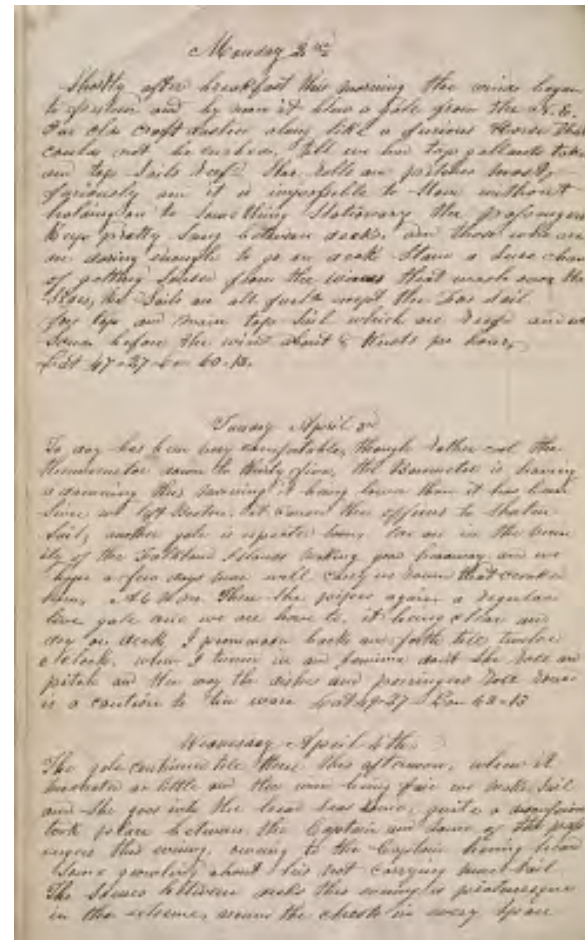 Monday 2nd
Shortly after breakfast this morning the wind began
to freshen and by noon it blew a gale from the N.E.
Our old craft dashes along like a furious Horse that
could not be curbed, till we had top gallants taken
in and top sails reefd. She rolls and pitches mostly
furiously and it is impossible to stand without
holding on to something stationary the passengers
keep pretty snug between decks, and those who are
daring enough to go on deck stand a chance
of getting from the waves that wash over the
sails are all furld except the sail
for top and main top sail which are reefd and we
before the wind about Knots per hour,
Lat 47-27 Lon 60-13.
Tuesday April 3rd
To day has been very comfortable, though rather cool the
thermometer down to thirty five, the Barometer is
a this morning it being lower than it has been
since we left Boston. the officers to shorten
sail, another gale is expected. We are in the
ity of the Falkland Islands making good headway and we
hope a few days more will carry us round that
Horn. again a regular
live gale and we are hove to, it being clear and
dry on deck, I back and forth till twelve
o'clock, when I turned in and She roll and
pitch and the way the dishes and porringers roll round
is a caution to tin ware Lat 49-27 Lon 63-13
Wednesday April 4th
The gale continued till three this afternoon, when it
moderated a little and the wind being fair we make sail
and she goes into the head seas some, quite a
took place between the Captain and some of the pass
engers this evening, owing to the Captain having heard
some growling about his not carrying much sail
The scenes between decks this evening is picturesque
in the extreme, round the chests in every space